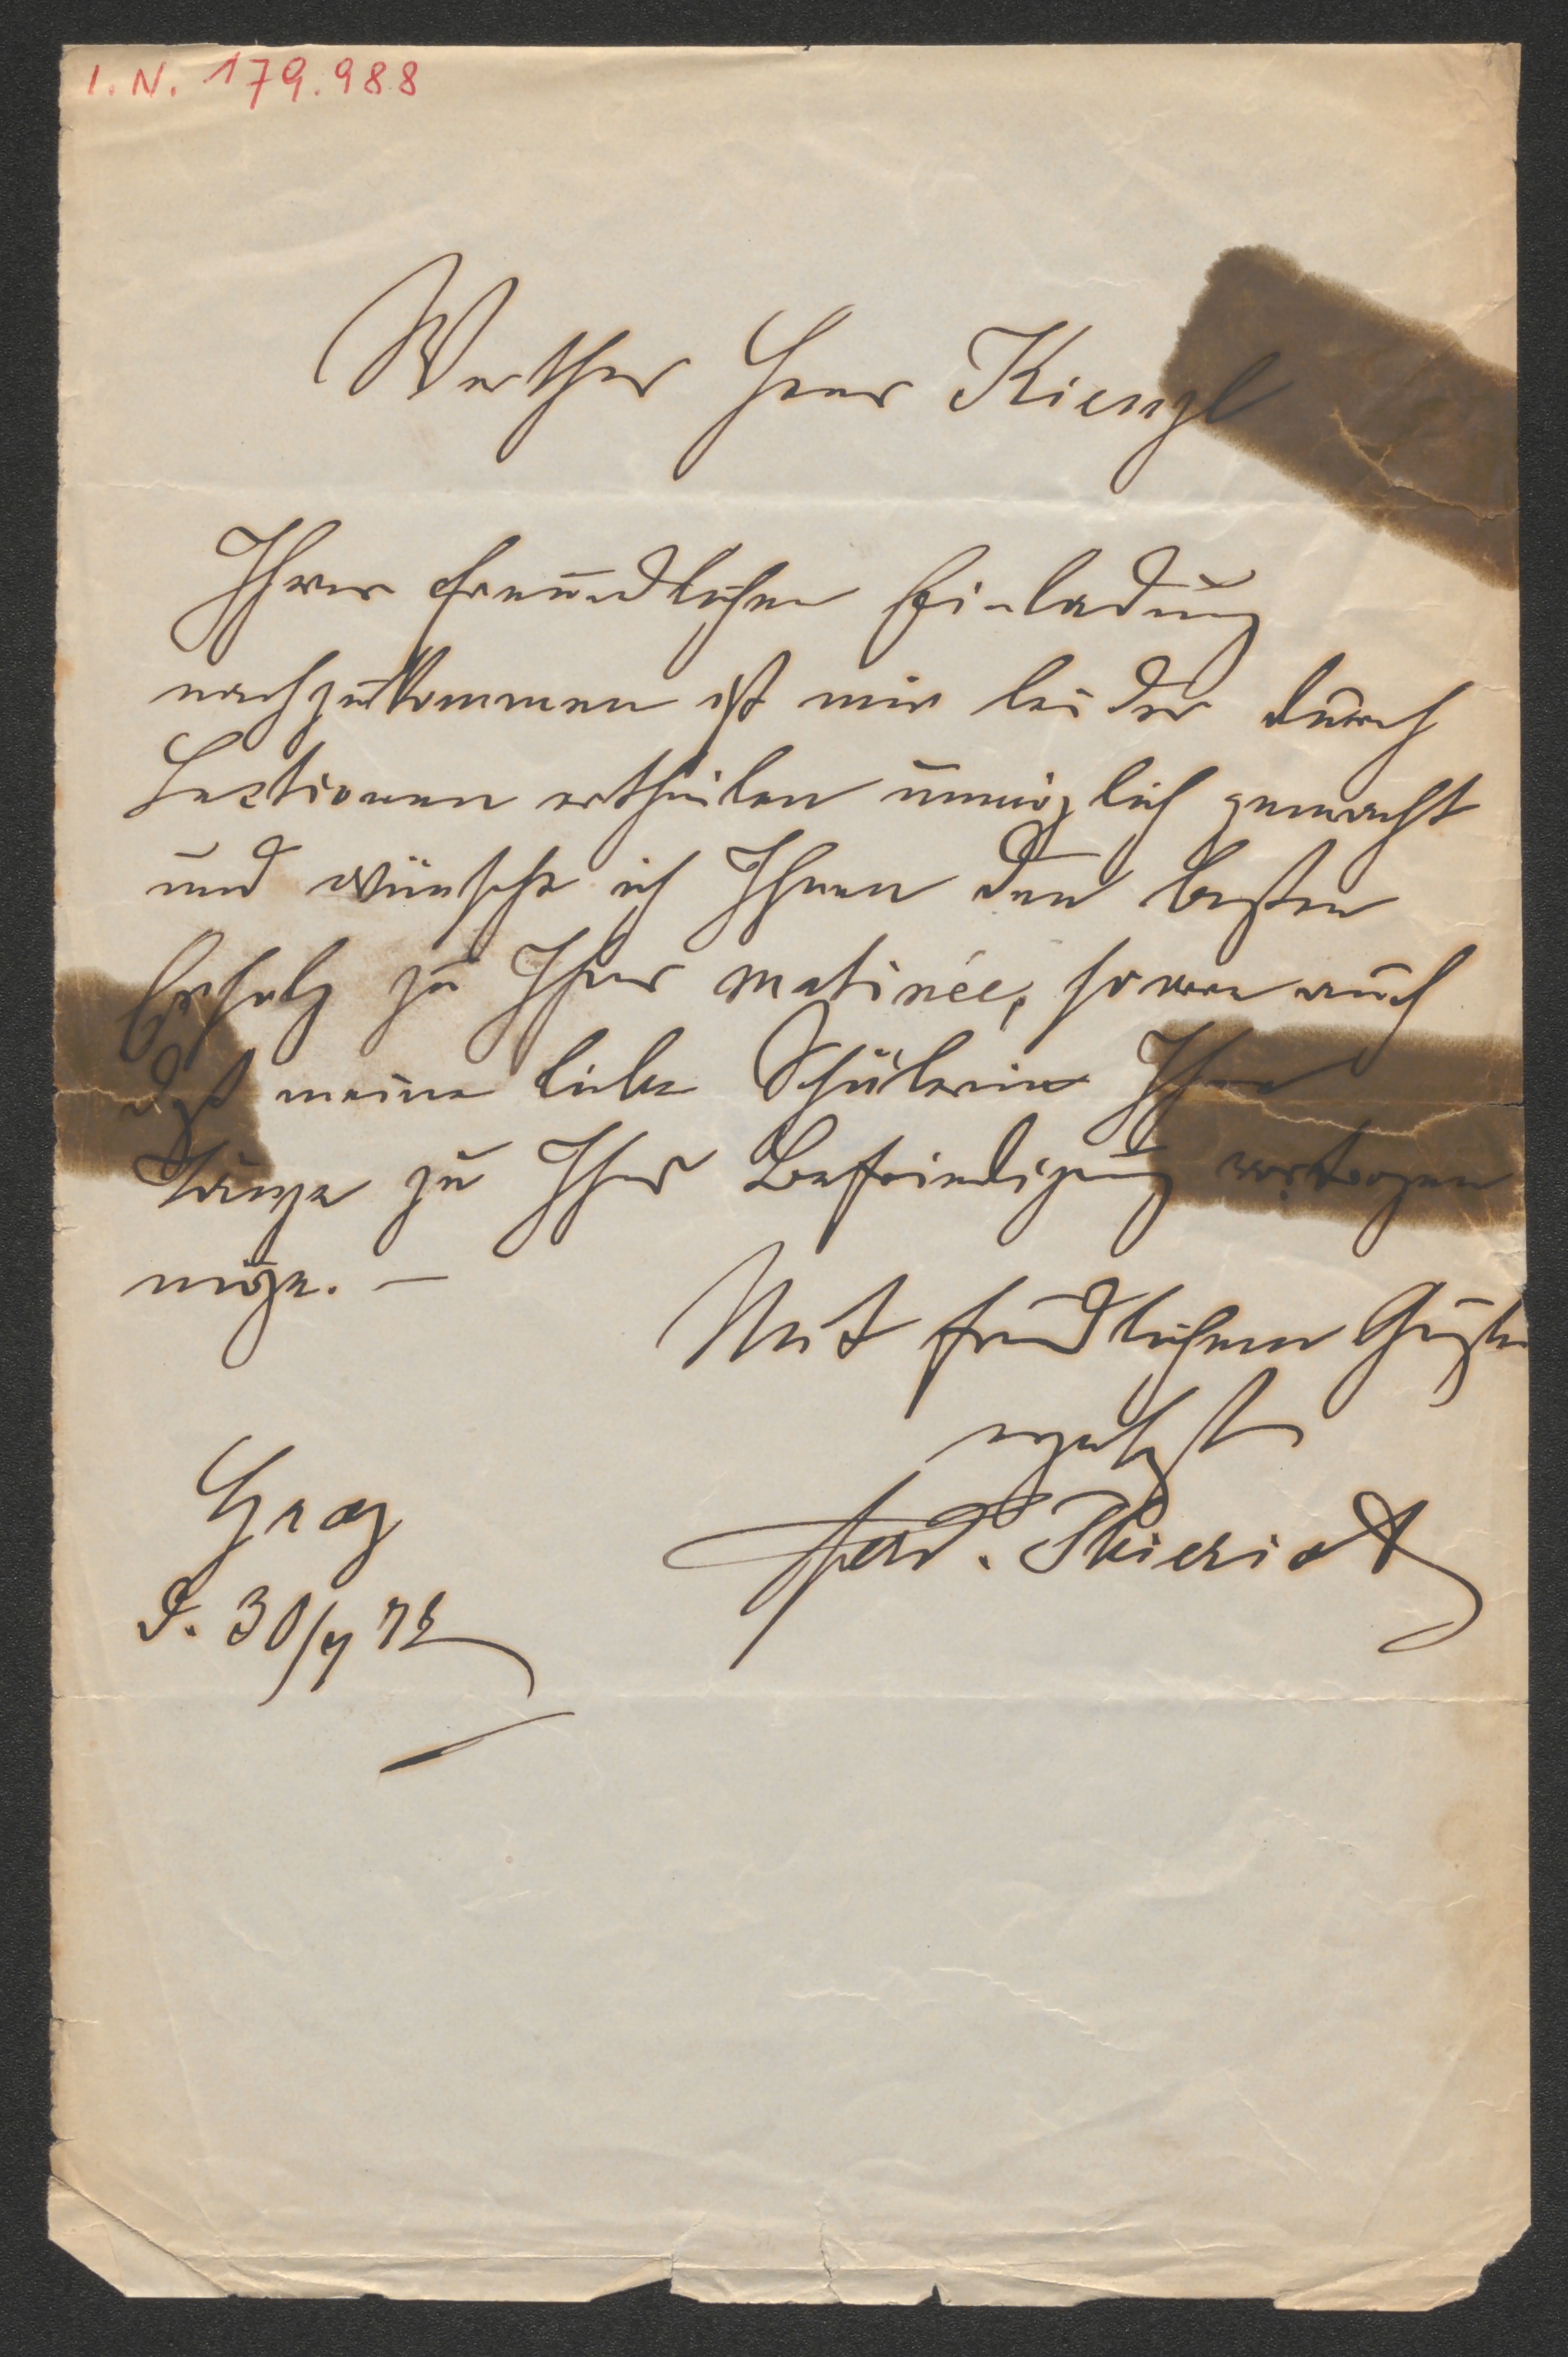 I. N. 179.988
Werther Herr Kienzl
Ihrer freundlichen Einladung
nachzukommen ist mir leider durch
Lectionen ertheilen unmöglich gemacht
und wünsche ich Ihnen den besten
Erfolg zu Ihrer matinée, sowie auch
daß meine liebe Schülerin Ihre
Tänze zu Ihrer Befriedigung vortragen
möge. —
Mit freundlichem Gruße
ergebenst
Graz
Ferd. Thieriot
d. 30/4 72